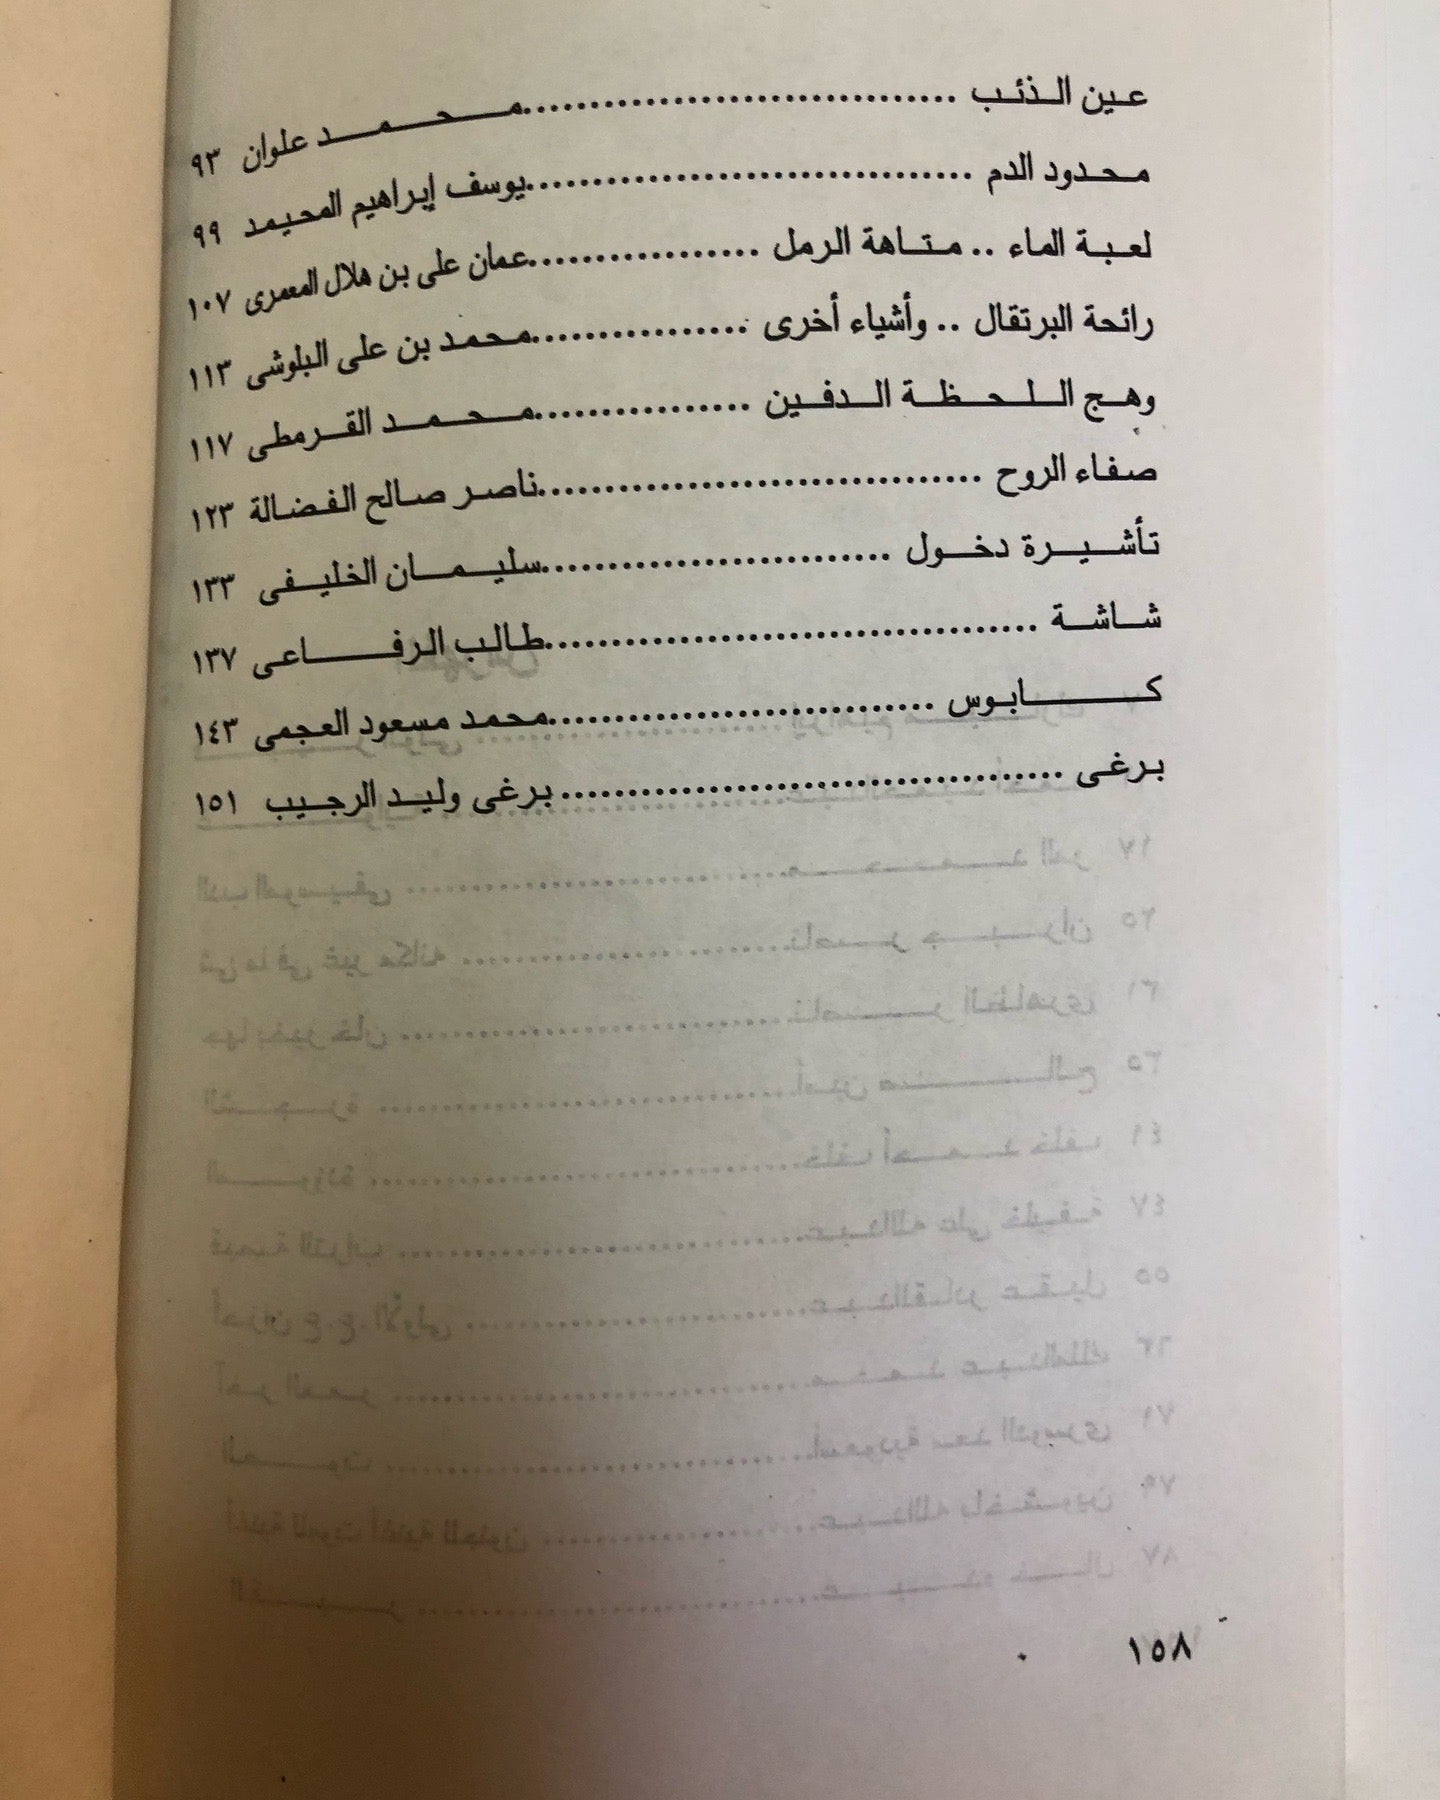 عين الذئب .................................محمد علوان ٩٣
محدود الدم ..................................يوسف إبراهيم المحيمد ٩٩
لعبة الماء .. متاهة الرمل ..................عمان على بن هلال المعمرى ١٠٧
رائحة البرتقال .. وأشياء أخرى ................محمد بن على البلوشى ١١٣
وهج اللحظة الدفين ................محمد القرمطى ١١٧
صفاء الروح ..................................ناصر صالح الفضالة ١٢٣
تأشيرة دخول ...........................سليمان الخليفى ١٣٣
شاشة ......................................طالب الرفاعى ١٣٧
كابوس ..............................محمد مسعود العجمى ١٤٣
برغى .......................................برغى وليد الرجيب ١٥١
١٥٨